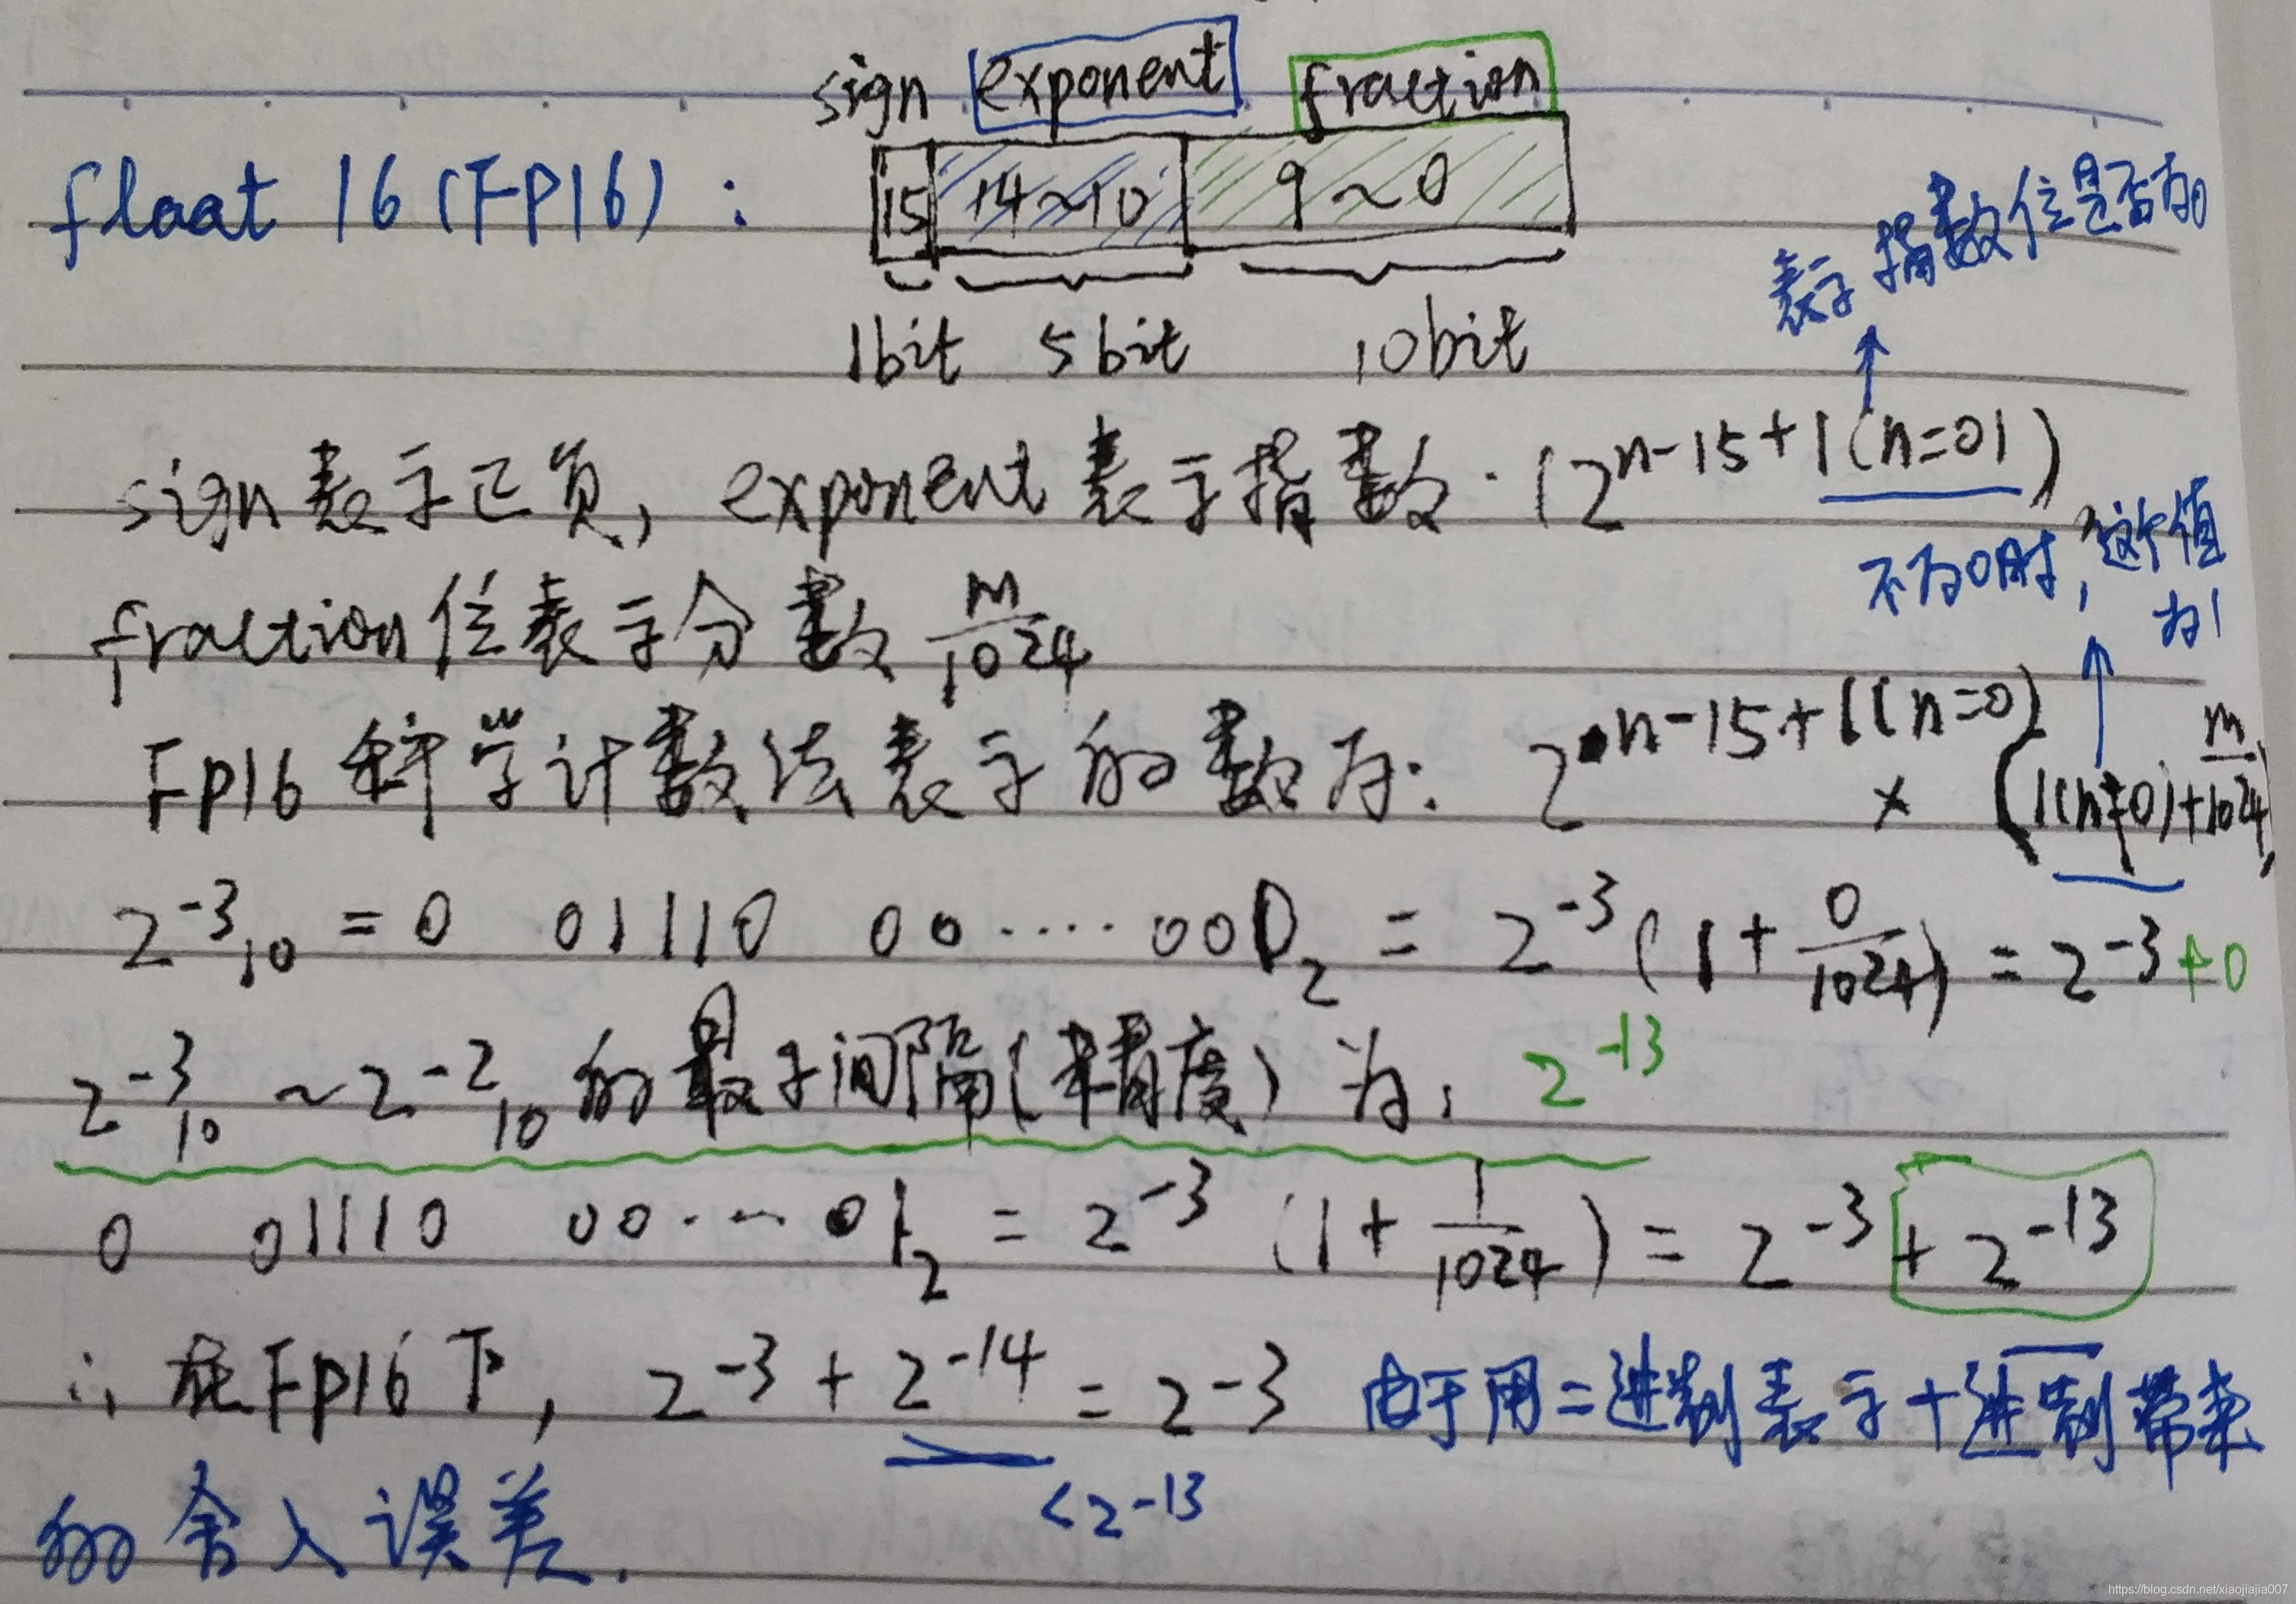 sign exponent fraction
float 16 (FP16) : 15 14~10 9~0
表示指数位是否为0
1bit 5bit 10bit
sign表示正负, exponent表示指数. (2^{n-15+1(n=0)})
不为0时, 这个值
为1
fraction位表示分数 m/1024
FP16科学计数法表示的数为: 2^{n-15+1(n=0)} × (1(n≠0)+m/1024)
2^{-3}_{10} = 0 01110 00....000_2 = 2^{-3} (1+0/1024) = 2^{-3}+0
2^{-3}_{10} ~ 2^{-2}_{10} 的最子间隔(精度)为: 2^{-13}
0 01110 00....01_2 = 2^{-3} (1+1/1024) = 2^{-3}+2^{-13}
∴在FP16下, 2^{-3}+2^{-14} = 2^{-3} 由于用二进制表示十进制带来
<2^{-13}
的舍入误差.
https://blog.csdn.net/xiaojiajia007